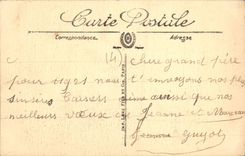 Carte Postale
Correspondance
Adresse
(4)
cher grand père
pour 1925 nous t'envoyons nos plus
sincères baisers ainsi que nos
meilleurs vœux de Jeanne et Marceau
Jeanne Guyot